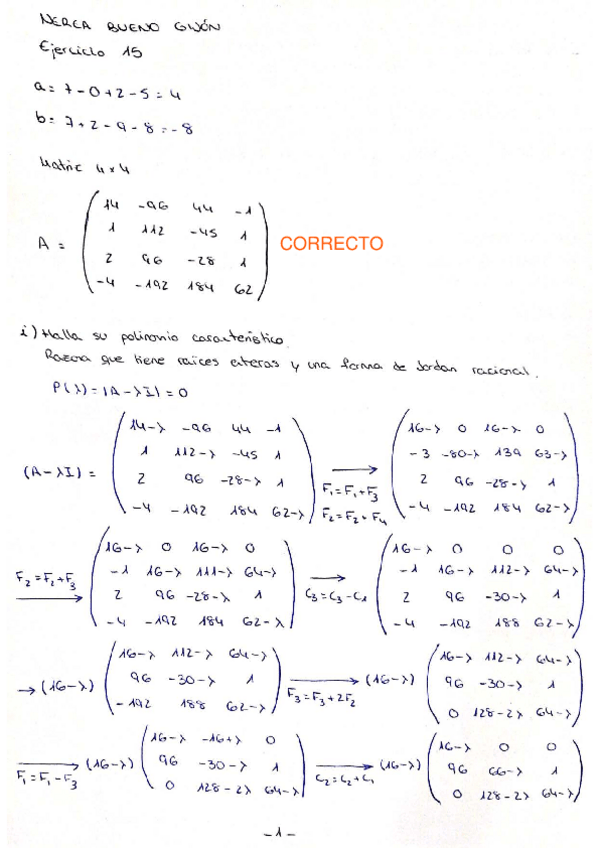 NEREA BUENO GIJÓN
Ejercicio 15
a = 7 - 0 + 2 - 5 = 4
b = 7 + 2 - 9 - 8 = -8
Matriz 4x4
A = ( 14 -96 44 -1
1 112 -45 1
2 96 -28 1
-4 -192 184 62 ) CORRECTO
i) Halla su polinomio característico.
Razona que tiene raíces enteras y una forma de Jordan racional.
P(λ) = |A - λI| = 0
(A - λI) = ( 14-λ -96 44 -1
1 112-λ -45 1
2 96 -28-λ 1
-4 -192 184 62-λ )
F₁=F₁+F₃
F₂=F₂+F₄
→ ( 16-λ 0 16-λ 0
-3 -80-λ 139 63-λ
2 96 -28-λ 1
-4 -192 184 62-λ )
F₂=F₂+F₃
→ ( 16-λ 0 16-λ 0
-1 16-λ 111-λ 64-λ
2 96 -28-λ 1
-4 -192 184 62-λ )
C₃=C₃-C₁
→ ( 16-λ 0 0 0
-1 16-λ 112-λ 64-λ
2 96 -30-λ 1
-4 -192 188 62-λ )
→ (16-λ) ( 16-λ 112-λ 64-λ
96 -30-λ 1
-192 188 62-λ )
F₃=F₃+2F₂
→ (16-λ) ( 16-λ 112-λ 64-λ
96 -30-λ 1
0 128-2λ 64-λ )
F₁=F₁-F₃
→ (16-λ) ( 16-λ -16+λ 0
96 -30-λ 1
0 128-2λ 64-λ )
C₂=C₂+C₁
→ (16-λ) ( 16-λ 0 0
96 66-λ 1
0 128-2λ 64-λ )
-1-